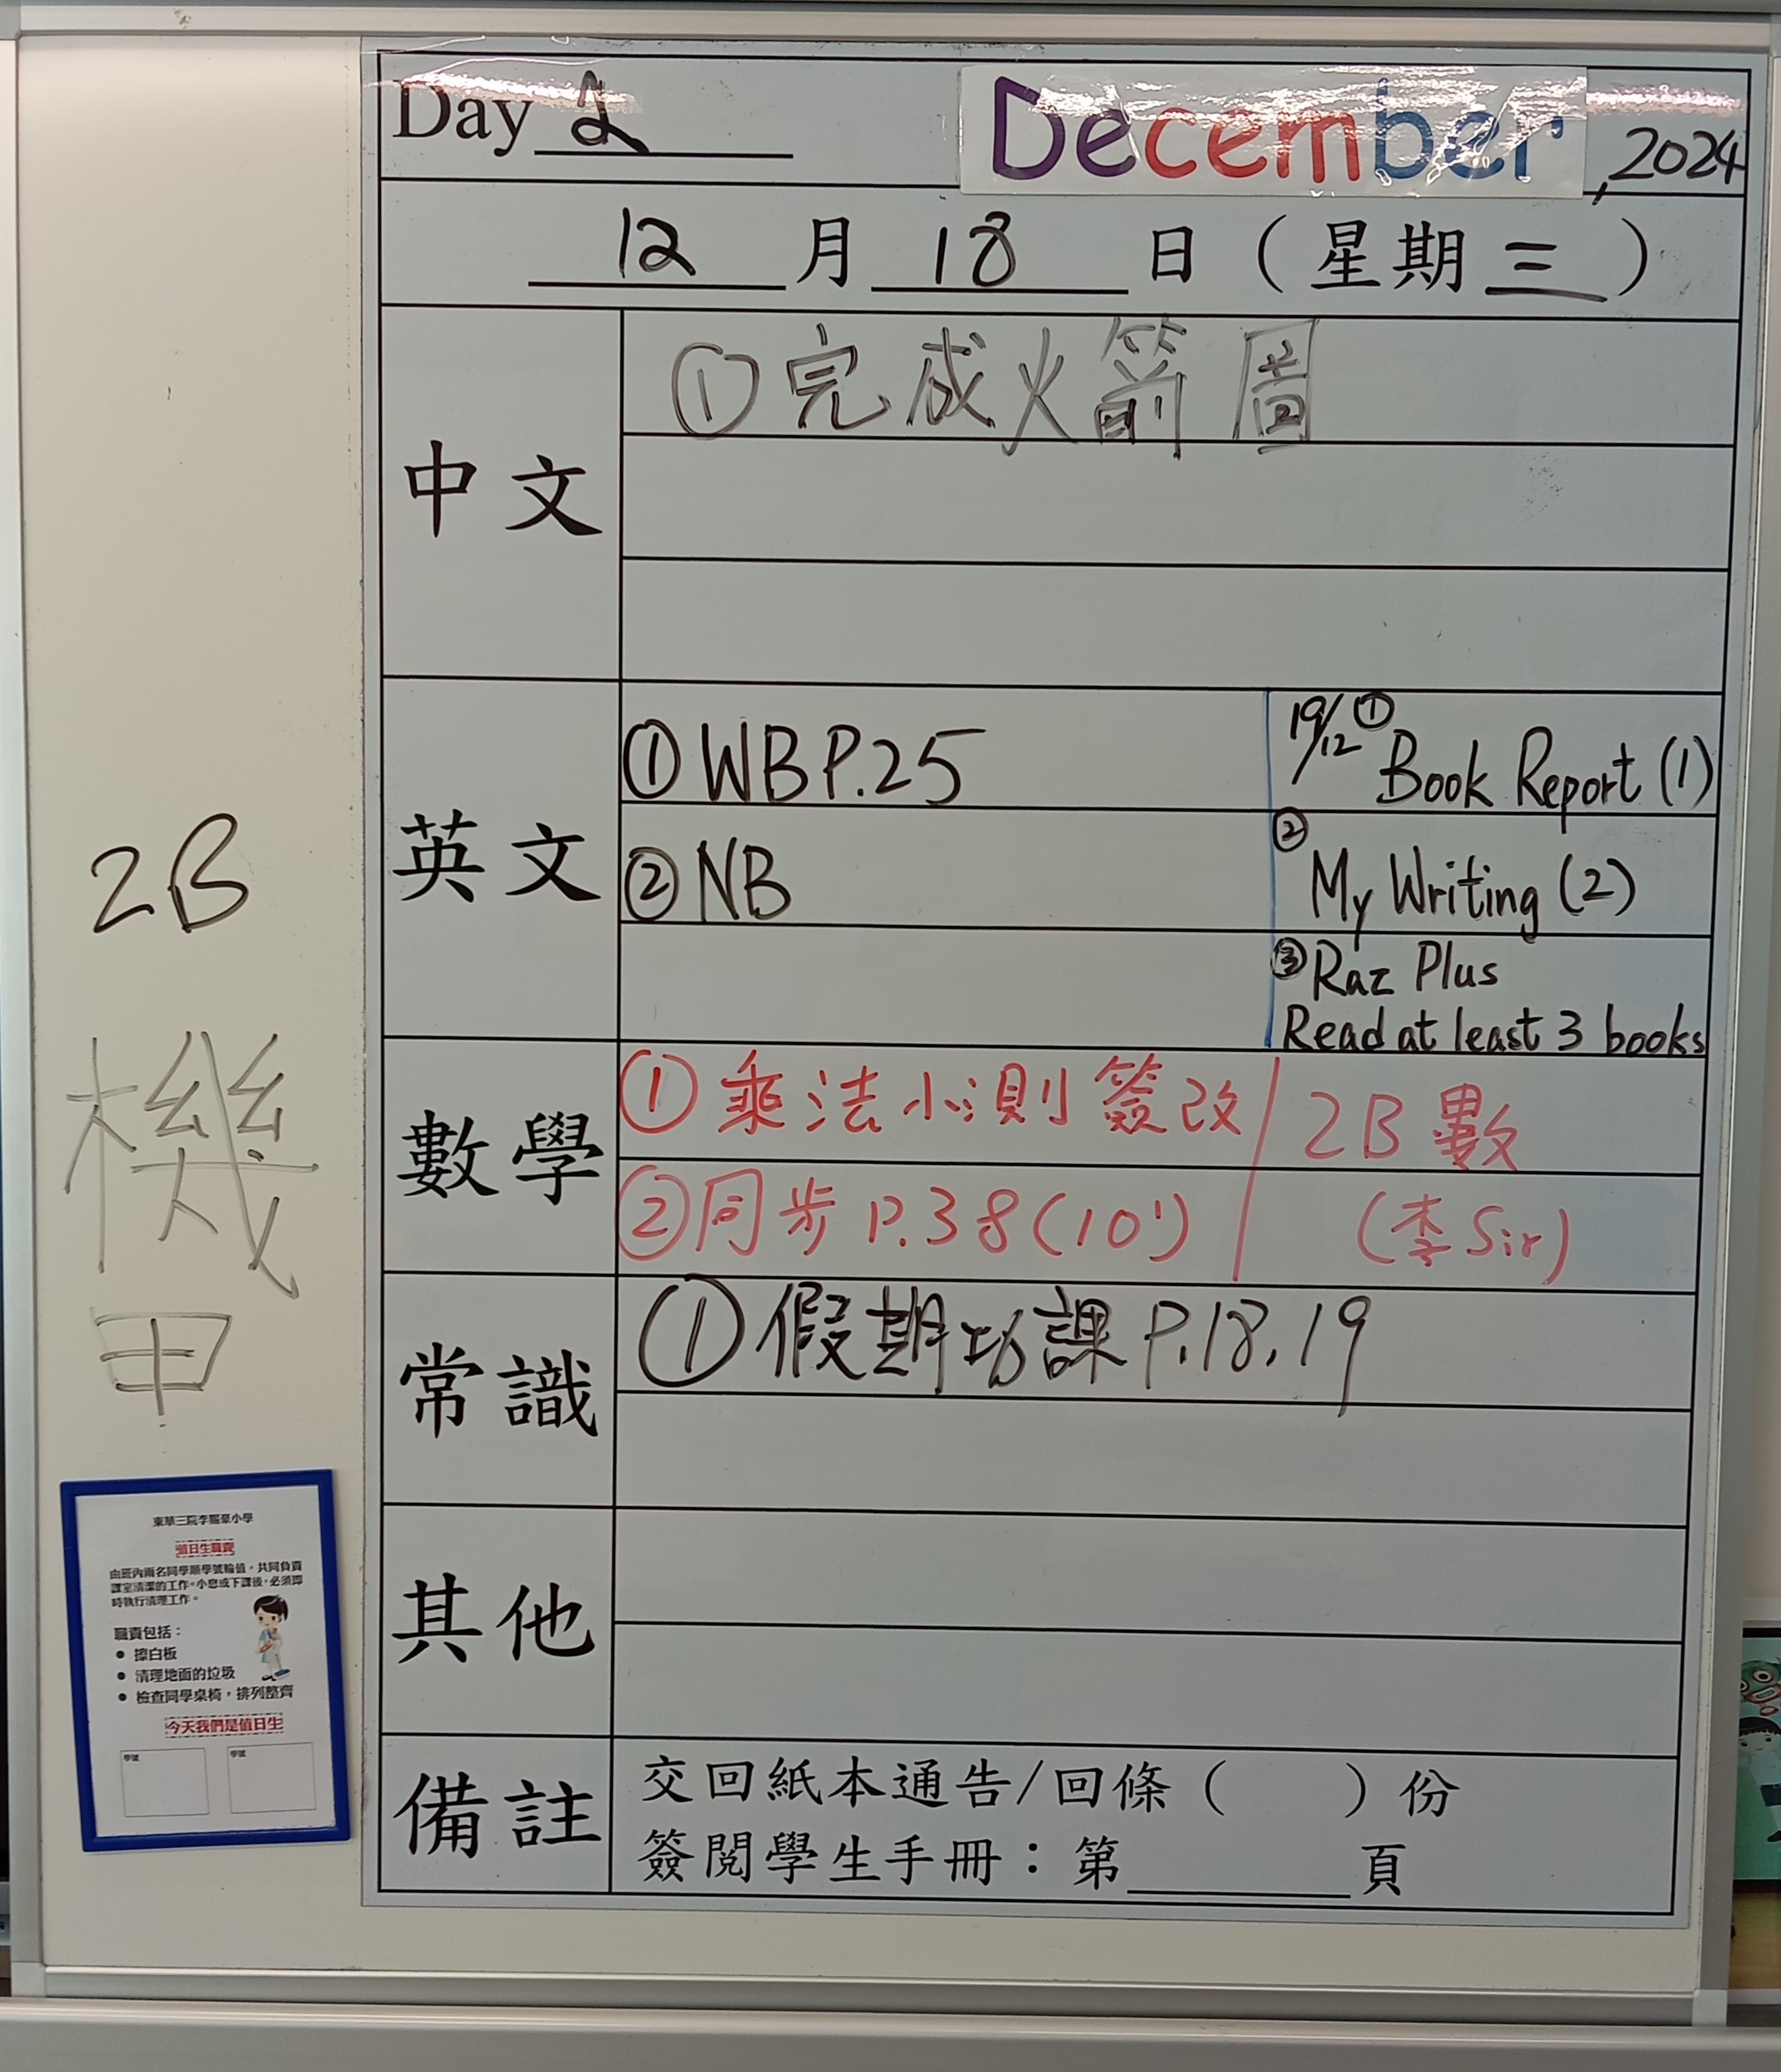 Day 2
December, 2024
12 月 18 日 ( 星期 三 )
中文
①完成火箭圖
英文
①WB P.25
②NB
19/12 ① Book Report (1)
② My Writing (2)
③ Raz Plus
Read at least 3 books
數學
①乘法小測簽改
②同步 P.38(10')
2B 數
(李 Sir)
常識
①假期功課 P.18.19
其他
備註
交回紙本通告/回條( )份
簽閱學生手冊：第 頁
2B
機
甲
東華三院李賜豪小學
值日生職責
由班內兩名同學順學號輪值，共同負責
課室清潔的工作。小息或下課後，必須即
時執行清理工作。
職責包括：
• 擦白板
• 清理地面的垃圾
• 檢查同學桌椅，排列整齊
今天我們是值日生
學號
學號